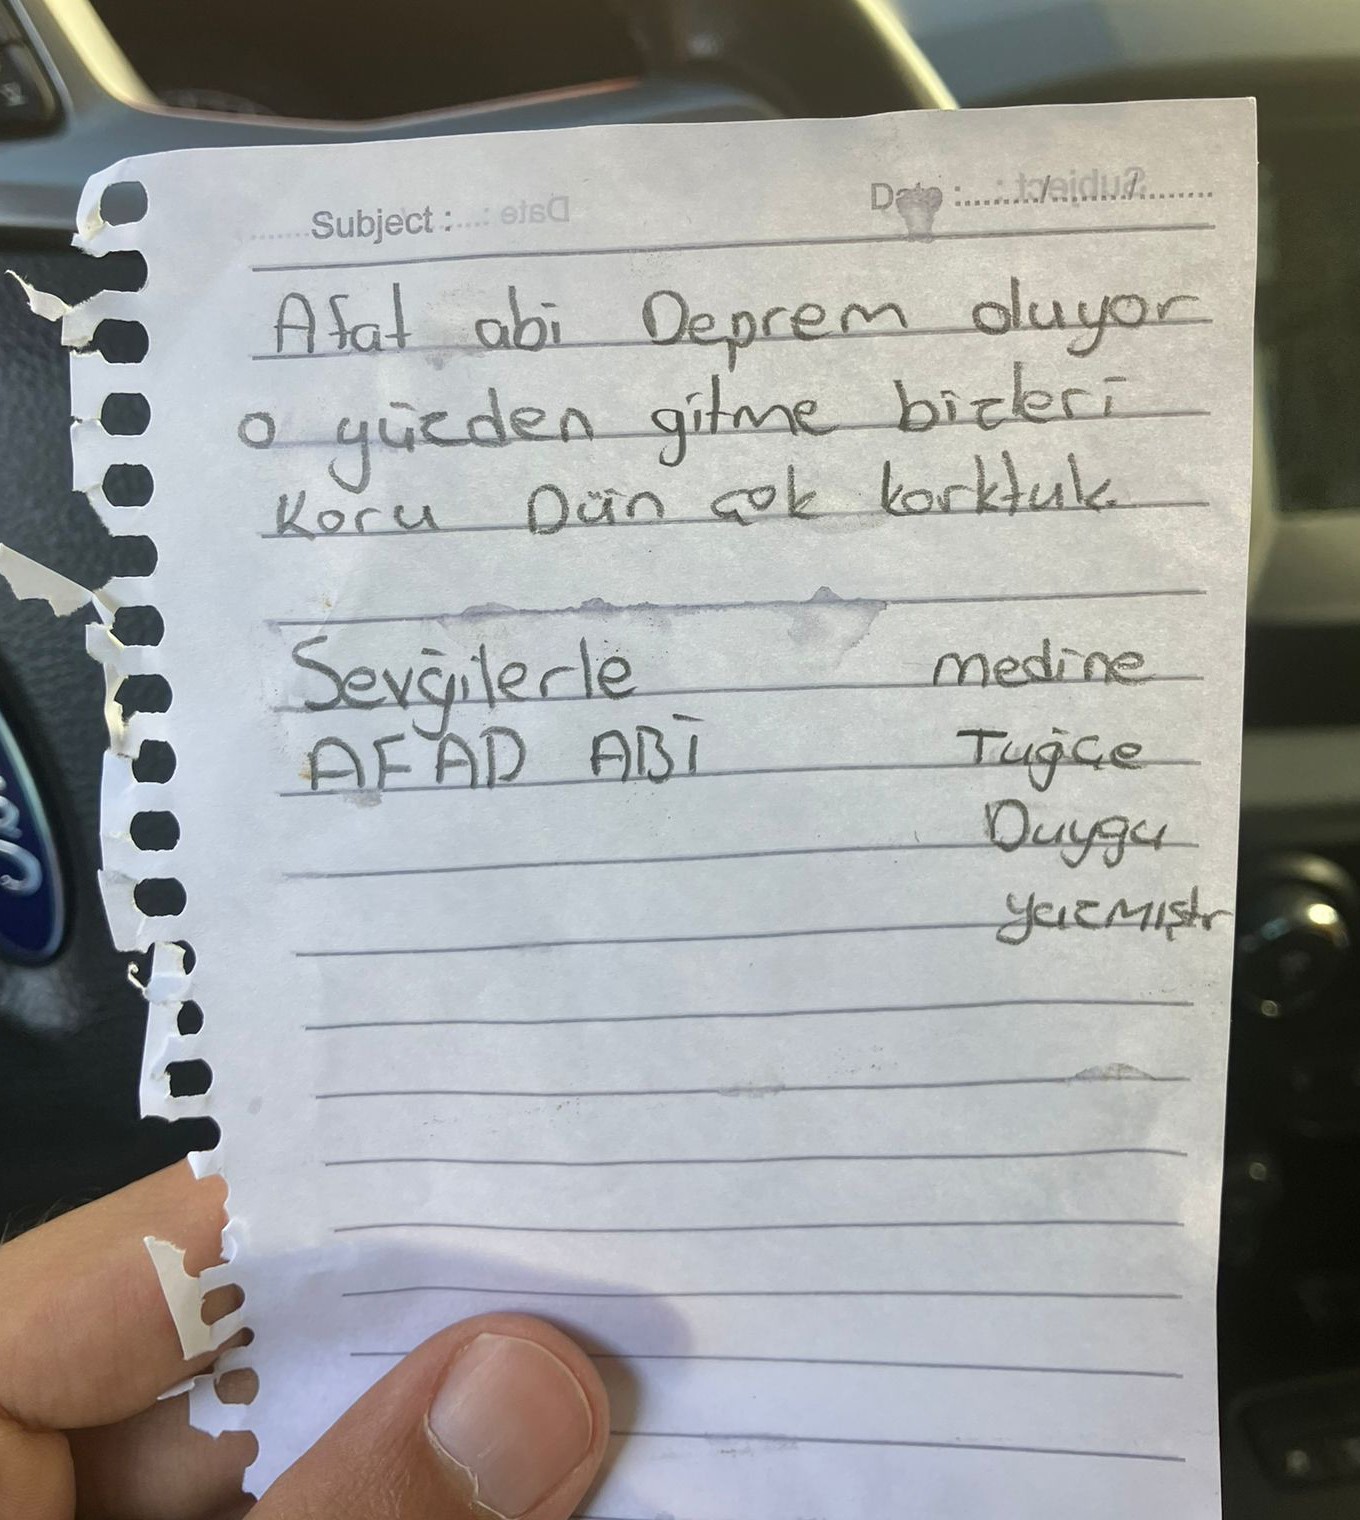 Subject :
Date :......../......./........
Afat abi Deprem oluyor
o yüzden gitme bizleri
Koru Dün çok korktuk.
Sevgilerle medine
AFAD ABİ Tuğçe
Duygu
yazmıştr